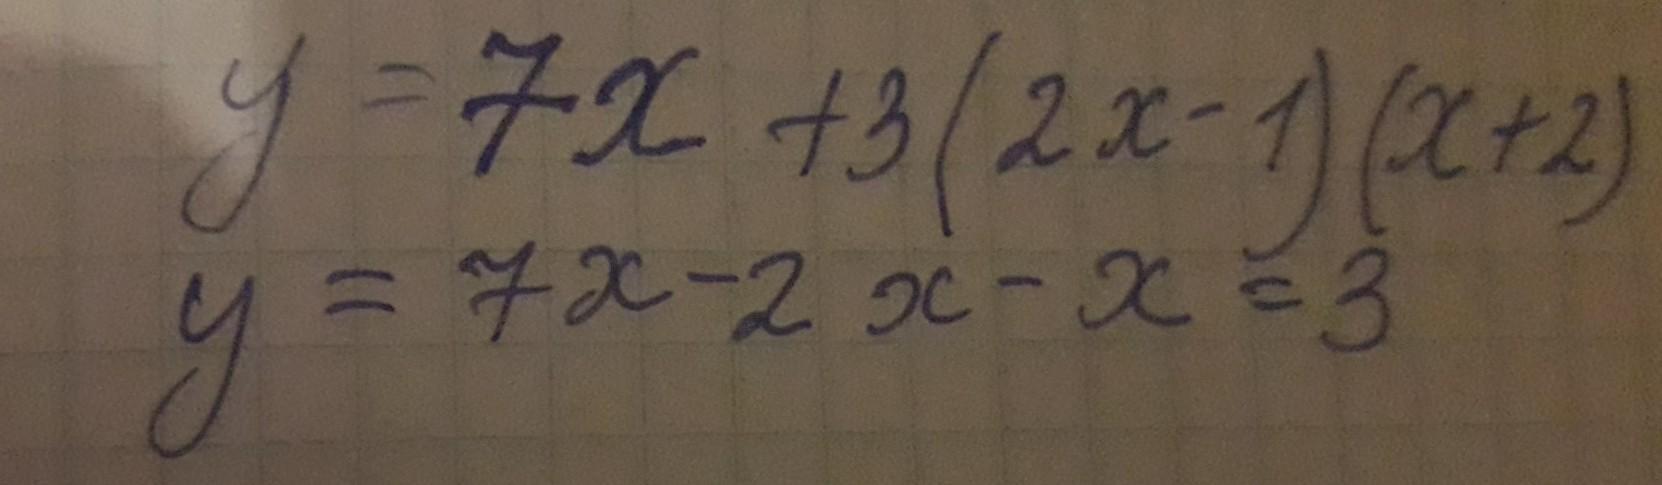 y = 7x + 3(2x - 1)(x + 2)
y = 7x - 2x - x = 3